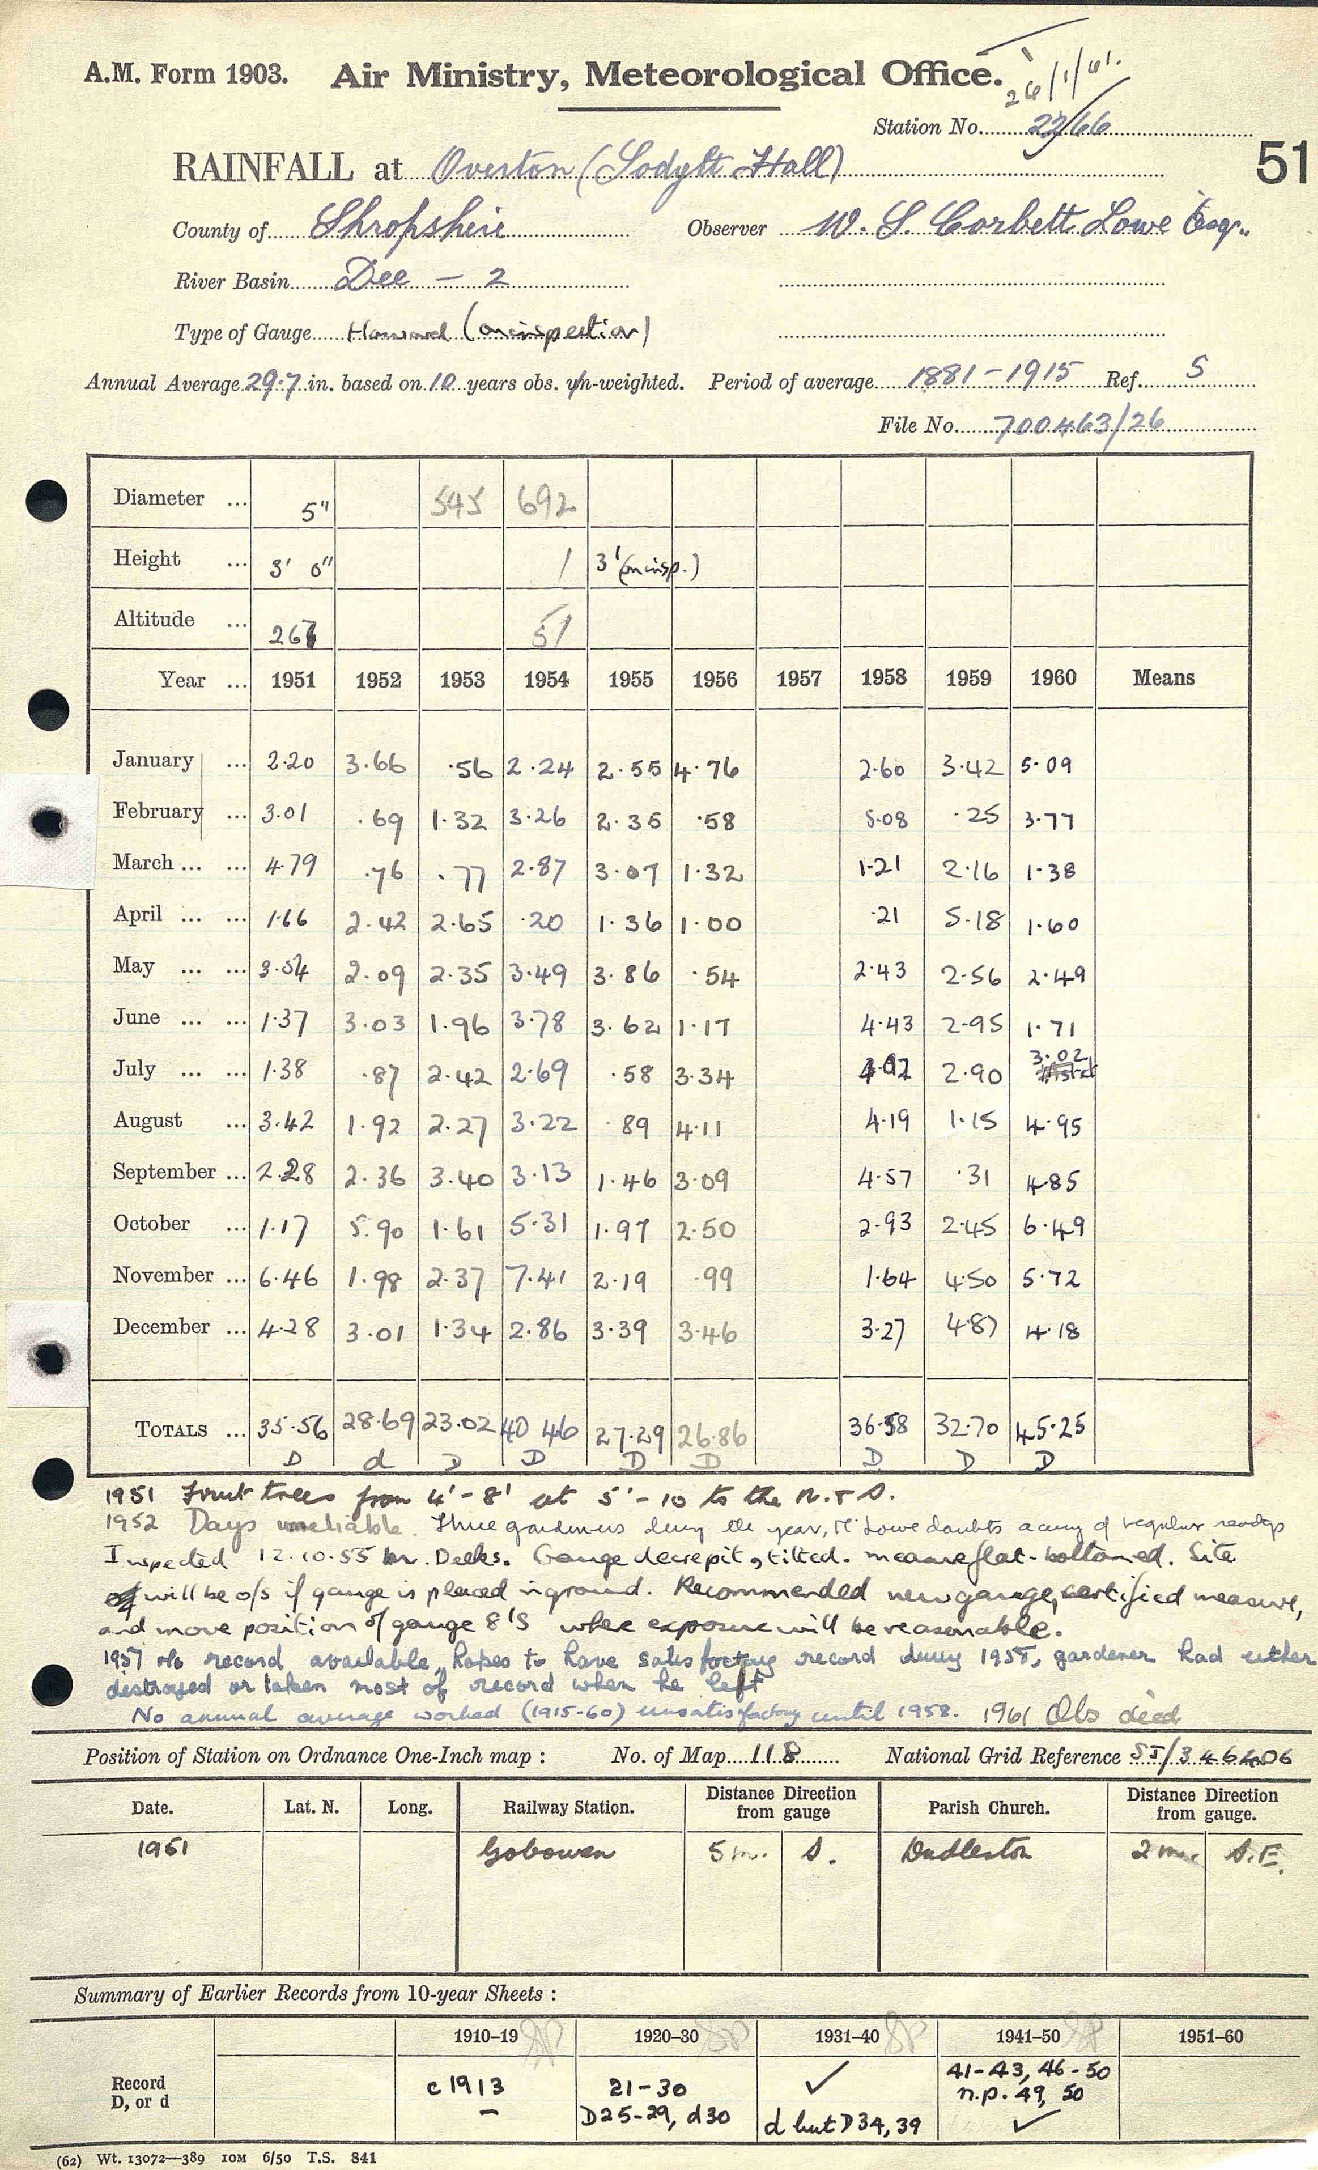 A.M. Form 1903. Air Ministry, Meteorological Office.
26/1/61.
Station No. 22/66
51
RAINFALL at Overton (Sodylt Hall)
County of Shropshire Observer W. S. Corbett Lowe Esq.
River Basin Dee - 2
Type of Gauge Howard (on inspection)
Annual Average 29.7 in. based on 10 years obs. un-weighted. Period of average 1881-1915 Ref. S
File No. 700463/26
Diameter ... 5" 545 692
Height ... 3' 0" 1 3' (on insp.)
Altitude ... 267 51
Year ... 1951 1952 1953 1954 1955 1956 1957 1958 1959 1960 Means
January ... 2.20 3.66 .56 2.24 2.55 4.76 2.60 3.42 5.09
February ... 3.01 .69 1.32 3.26 2.35 .58 5.08 .25 3.77
March ... ... 4.79 .76 .77 2.87 3.07 1.32 1.21 2.16 1.38
April ... ... 1.66 2.42 2.65 .20 1.36 1.00 .21 5.18 1.60
May ... ... 3.54 2.09 2.35 3.49 3.86 .54 2.43 2.56 2.49
June ... ... 1.37 3.03 1.96 3.78 3.62 1.17 4.43 2.95 1.71
July ... ... 1.38 .87 2.42 2.69 .58 3.34 4.02 2.90 3.02
August ... 3.42 1.92 2.27 3.22 .89 4.11 4.19 1.15 4.95
September ... 2.28 2.36 3.40 3.13 1.46 3.09 4.57 .31 4.85
October ... 1.17 5.90 1.61 5.31 1.97 2.50 2.93 2.45 6.49
November ... 6.46 1.98 2.37 7.41 2.19 .99 1.64 4.50 5.72
December ... 4.28 3.01 1.34 2.86 3.39 3.46 3.27 4.87 4.18
TOTALS ... 35.56 28.69 23.02 40 46 27.29 26.86 36.58 32.70 45.25
D d D D D D D D D
1951 Fruit trees from 4'-8' at 5'-10 to the N. & S.
1952 Days unreliable. Three gardeners during the year, Mr Lowe doubts accuracy of regular readings
Inspected 12.10.55 Mr. Deeks. Gauge decrepit, tilted. measure flat-bottomed. Site
will be o/s if gauge is placed in ground. Recommended new gauge, certified measure,
and move position of gauge 8' S where exposure will be reasonable.
1957 No record available, hopes to have satisfactory record during 1958, gardener had either
destroyed or taken most of record when he left
No annual average worked (1915-60) unsatisfactory until 1958. 1961 Obs died
Position of Station on Ordnance One-Inch map : No. of Map 118 National Grid Reference SJ/346406
Date. Lat. N. Long. Railway Station. Distance from gauge Direction Parish Church. Distance from gauge. Direction
1951 Gobowen 5 m. S. Dudleston 2 m. S.E.
Summary of Earlier Records from 10-year Sheets :
1910-19 1920-30 1931-40 1941-50 1951-60
Record c 1913 21-30 ✓ 41-43, 46-50
n.p. 49, 50
D, or d - D25-29, d30 d but D34, 39 ✓
(62) Wt. 13072—389 10M 6/50 T.S. 841